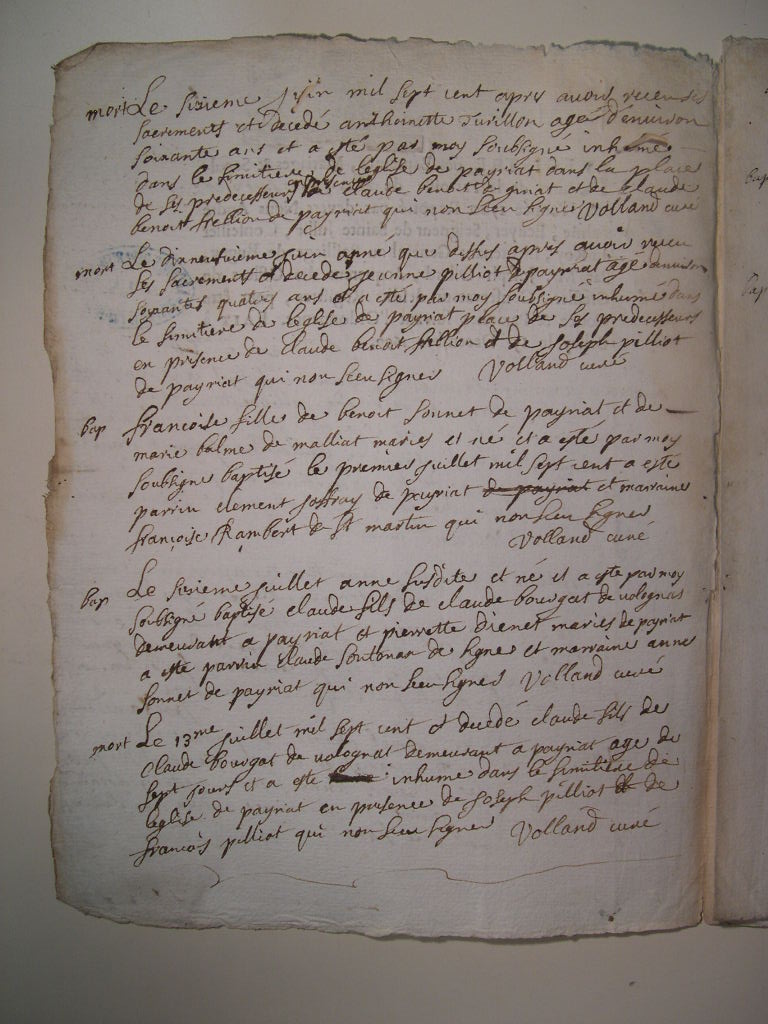 mort Le sizieme juin mil sept cent apres avoir receu ses
sacrements et decedé anthoinette Turillon agé d'environ
soixante ans et a esté par moy soubsigné inhumé
dans le simitiere de leglise de payriat dans la place
de ses predecesseurs en presence de Claude benoit de et de Claude
benoit frellion de payriat qui non sceu signer Volland curé
mort Le dixneufvieme juin anné que dessus apres avoir receu
ses sacrements et decedé jeanne pilliot de payriat agé denviron
soixantes quatres ans et a esté par moy soubsigné inhumé dans
le simitiere de leglise de payriat place de ses predecesseurs
en presence de Claude benoit frellion et de Joseph pilliot
de payriat qui non sceu signer Volland curé
bap françoise fille de benoit sonnet de payriat et de
marie balme de malliat maries et né et a esté par moy
soubsigne baptisé le premier juillet mil sept cent a este
parrin clement joffray de peyriat de payriat et marraine
françoise Rambert de St martin qui non sceu signer
Volland curé
bap Le sizieme juillet anne susdite et né et a este par moy
soubsigné baptisé claude fils de claude bourgat de volognat
demeurant a payriat et pierrette maries de payriat
a este parrin Claude de signe et marraine anne
sonnet de payriat qui non sceu signer Volland curé
mort Le 13me juillet mil sept cent et decedé claude fils de
claude bourgat de volognat demeurant a payriat age de
sept jours et a este inhume dans le simitiere de
leglise de payriat en presence de Joseph pilliot et de
françois pilliot qui non sceu signer Volland curé